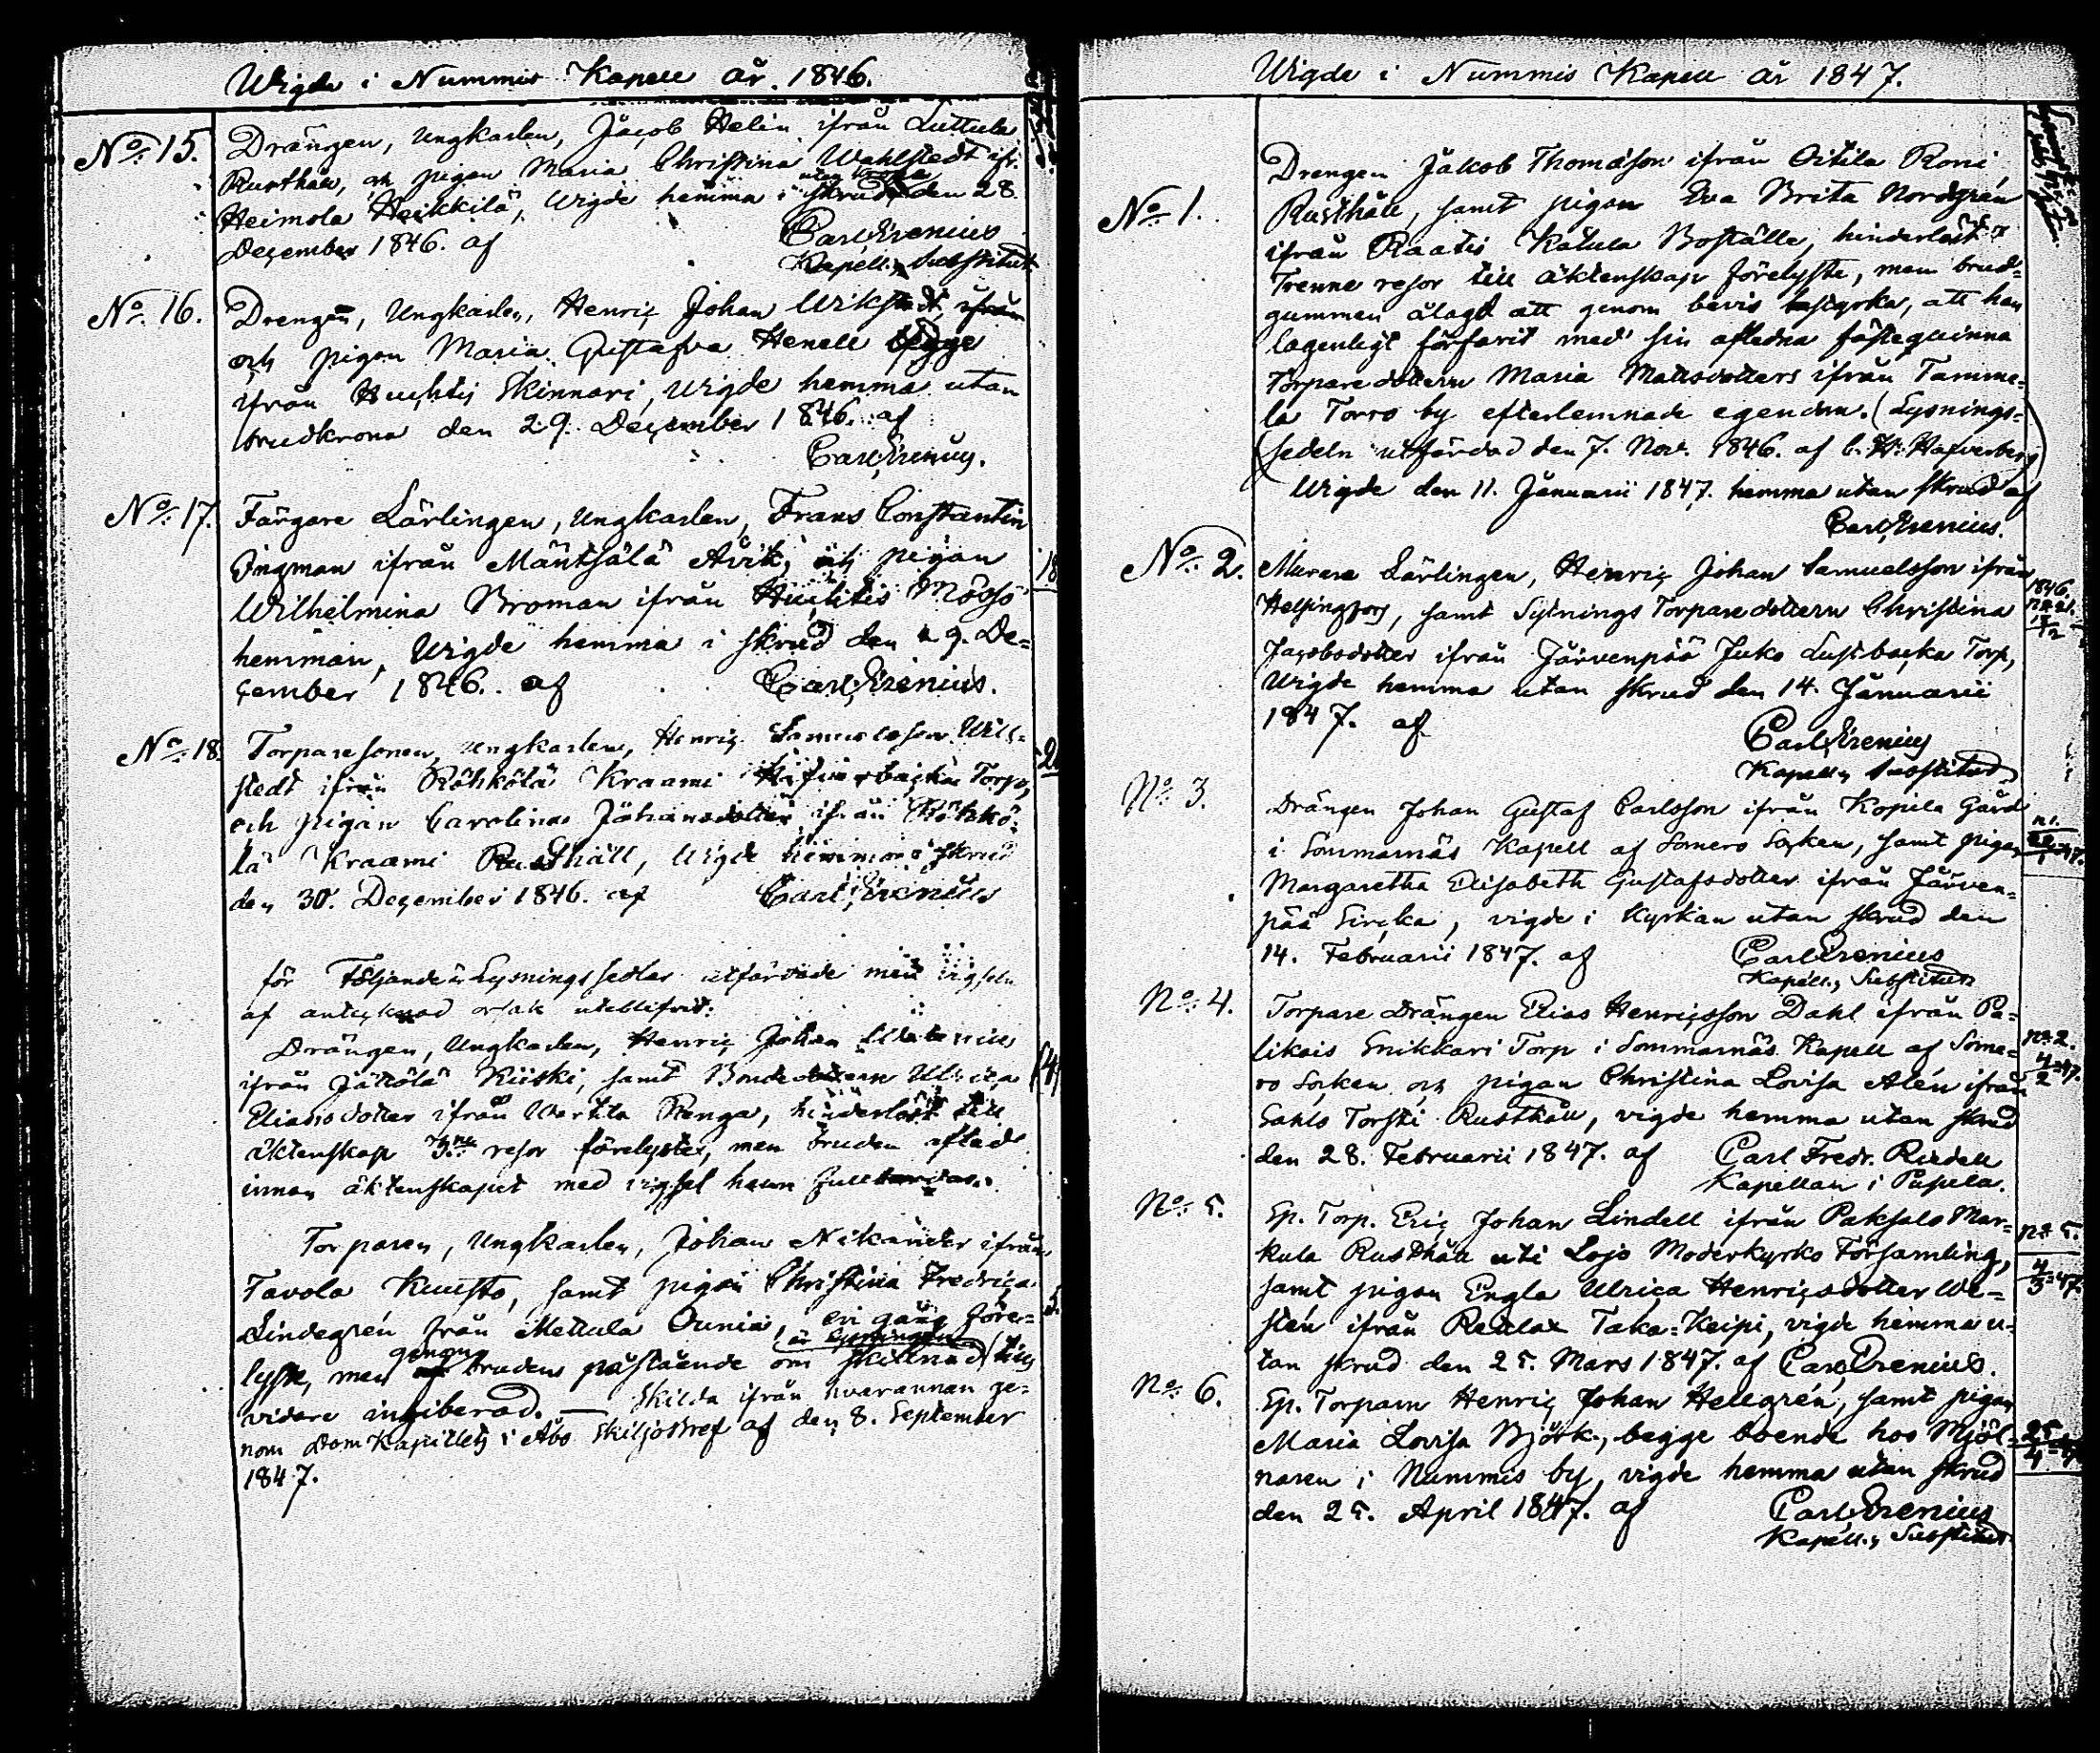 Wigde i Nummis Kapell År. 1846.
No. 15. Drängen, Ungkarlen, Jacob Helin ifrån Luttula
Rusthåll, och pigan Maria Christina Wahlstedt ifr.
Heimola Heikkilä, Wigde hemma i skrud utan krona den 28.
December 1846. af Carl Erenius
Kapell.s Substitut
No. 16. Drengen, Ungkarlen, Henric Johan Wikstedt, ifrån
och pigan Maria Gustafva Henell begge
ifrån Huhtis Skinnari, Wigde hemma utan
brudkrona den 29. December 1846. af
Carl Erenius.
No. 17. Färgare Lärlingen, Ungkarlen, Frans Constantin
Ingman ifrån Mäntsälä Åvik, och pigan
Wilhelmina Broman ifrån Huhtis Mössö
hemman, Wigde hemma i skrud den 29. De=
cember 1846. af Carl Erenius.
No. 18. Torpare sonen, Ungkarlen, Henric Samuelsson Will=
stedt ifrån Röhkölä Kraami Torp,
och pigan Carolina Johansdotter ifrån Röhkö=
lä Kraami Rusthåll, Wigde hemma i skrud
den 30. December 1846. af Carl Erenius
för Följande är Lysningssedlar utfärdade men vigseln
af antecknad orsak uteblifvit:
Drängen, Ungkarlen, Henric Johan
ifrån Jättölä Kiiski, samt Bondedottern Ulrica
Eliasdotter ifrån Wartila Renga, hinderlöst till
äktenskap 3ne resor förelyste, men bruden afled
innan äktenskapet med vigsel hann fullbordas.
Torparen, Ungkarlen, Johan Nikander ifrån
Tavola Knusto, samt pigan Christina Fredrica
Lindegrén från Mettula Ounia, en gång före=
lyste, men genom brudens påstående om skillnad är lysningen tills
vidare inhiberad. — Skilda ifrån hvarannan ge=
nom DomKapitlets i Åbo Skiljobref af den 8. September
1847.
Wigde i Nummis Kapell År 1847.
No. 1. Drengen Jakob Thomasson ifrån Oitila Roni
Rusthåll, samt pigan Eva Brita Nordgrén
ifrån Raatis Katula Boställe, hinderlöst
Trenne resor till äktenskap förelyste, men brud=
gummen ålagd att genom bevis bestyrka, att han
lagenligt förfarit med sin afledna fästeqvinna
Torparedottern Maria Mattsdotters ifrån Tamme=
la Torro by efterlemnade egendom. (Lysnings=
sedeln utfärdad den 7. Nov. 1846. af C. H. Hafverberg)
Wigde den 11. Januarii 1847. hemma utan skrud af
Carl Erenius.
No. 2. Murare Lärlingen, Henric Johan Samuelsson ifrån
Helsingfors, samt Sytnings Torparedottern Christina
Jacobsdotter ifrån Järvenpää Juko Lustbacka Torp,
Wigde hemma utan skrud den 14. Januarii
1847. af
Carl Erenius
Kapell.s Substitut
No. 3. Drängen Johan Gustaf Carlsson ifrån Kopila Gård
i Sommarnäs Kapell af Somero Socken, samt pigan
Margaretha Elisabeth Gustafsdotter ifrån Järven=
pää Sircka, vigde i Kyrkan utan skrud den
14. Februarii 1847. af Carl Erenius
Kapell.s Substitut
No. 4. Torpare Drängen Elias Henricsson Dahl ifrån Pa=
likais Snikkari Torp i Sommarnäs Kapell af Some=
ro Socken, och pigan Christina Lovisa Alén ifrån
Sahls Torsti Rusthåll, vigde hemma utan skrud
den 28. Februarii 1847. af Carl Fredr. Rudell
Kapellan i Pusula.
No. 5. Sp. Torp. Eric Johan Lindell ifrån Paksalo Mar=
kula Rusthåll uti Lojo Moderkyrko Församling,
samt pigan Engla Ulrica Henricsdotter We=
stén ifrån Retlax Taka=Keipi, vigde hemma u=
tan skrud den 25. Mars 1847. af Carl Erenius.
No. 6. Sp. Torparen Henric Johan Hellgrén, samt pigan
Maria Lovisa Björk, begge boende hos Mjöl=
naren i Nummis by, vigde hemma utan skrud
den 25. April 1847. af Carl Erenius
Kapell.s Substitut